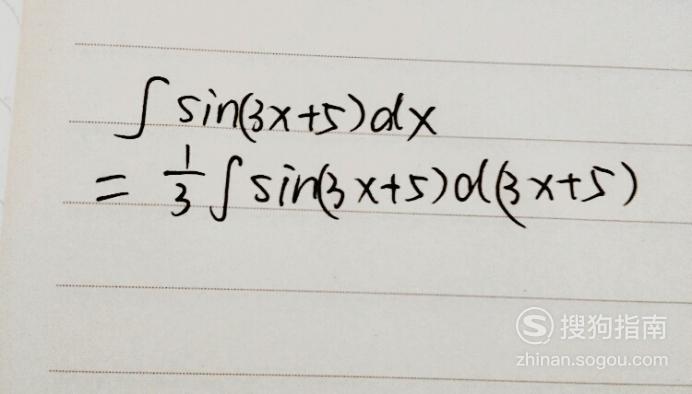 ∫ sin(3x+5)dx
= 1/3 ∫ sin(3x+5)d(3x+5)
S 搜狗指南
zhinan.sogou.com